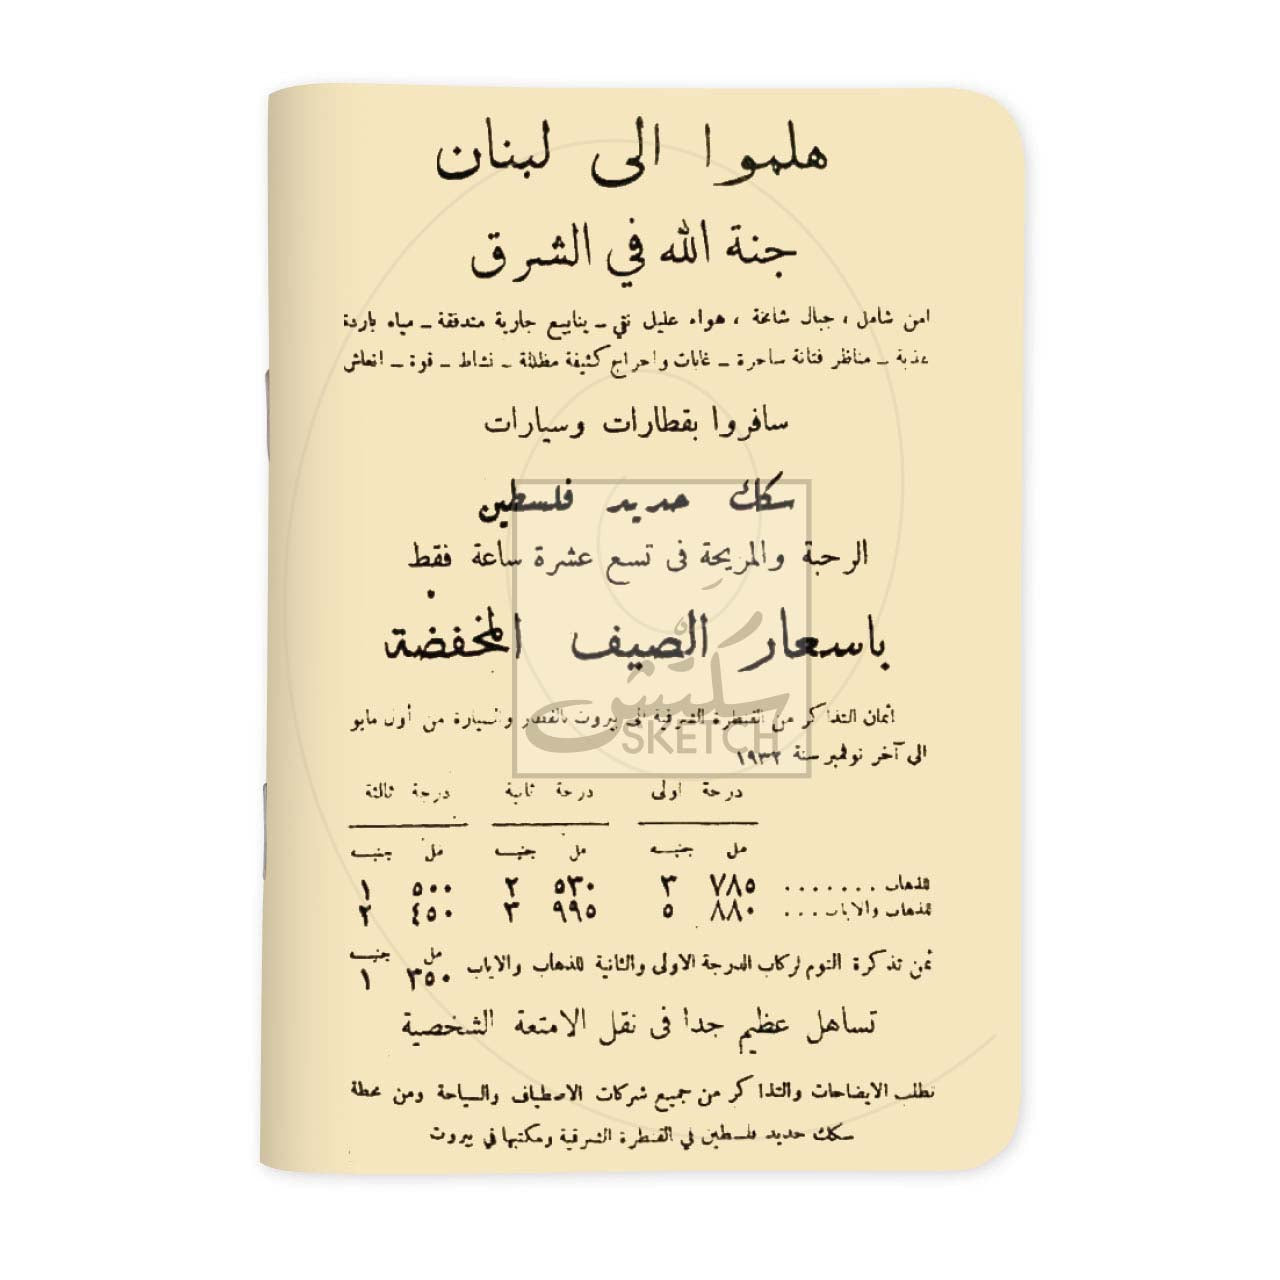 هلموا الى لبنان
جنة الله في الشرق
امن شامل ، جبال شامخة ، هواء عليل نقي ــ ينابيع جارية متدفقة ــ مياه باردة
عذبة ــ مناظر فتانة ساحرة ــ غابات واحراج كثيفة مظللة ــ نشاط ــ قوة ــ انعاش
سافروا بقطارات وسيارات
سكك حديد فلسطين
الرحبة والمريحة فى تسع عشرة ساعة فقط
باسعار الصيف المخفضة
سكتش
SKETCH
أثمان التذاكر من القنطرة الشرقية الى بيروت بالقطار والسيارة من أول مايو
الى آخر نوفمبر سنة ١٩٣٢
درجة اولى درجة ثانية درجة ثالثة
مل جنيــه مل جنيــه مل جنيــه
للذهاب . . . . . . . ٧٨٥ ٣ ٥٣٠ ٢ ٥٠٠ ١
للذهاب والاياب . . . ٨٨٠ ٥ ٩٩٥ ٣ ٤٥٠ ٢
مل جنيــه
ثمن تذكرة النوم لركاب الدرجة الاولى والثانية للذهاب والاياب ٣٥٠ ١
تساهل عظيم جدا فى نقل الامتعة الشخصية
تطلب الايضاحات والتذاكر من جميع شركات الاصطياف والسياحة ومن محطة
سكك حديد فلسطين في القنطرة الشرقية ومكتبها في بيروت